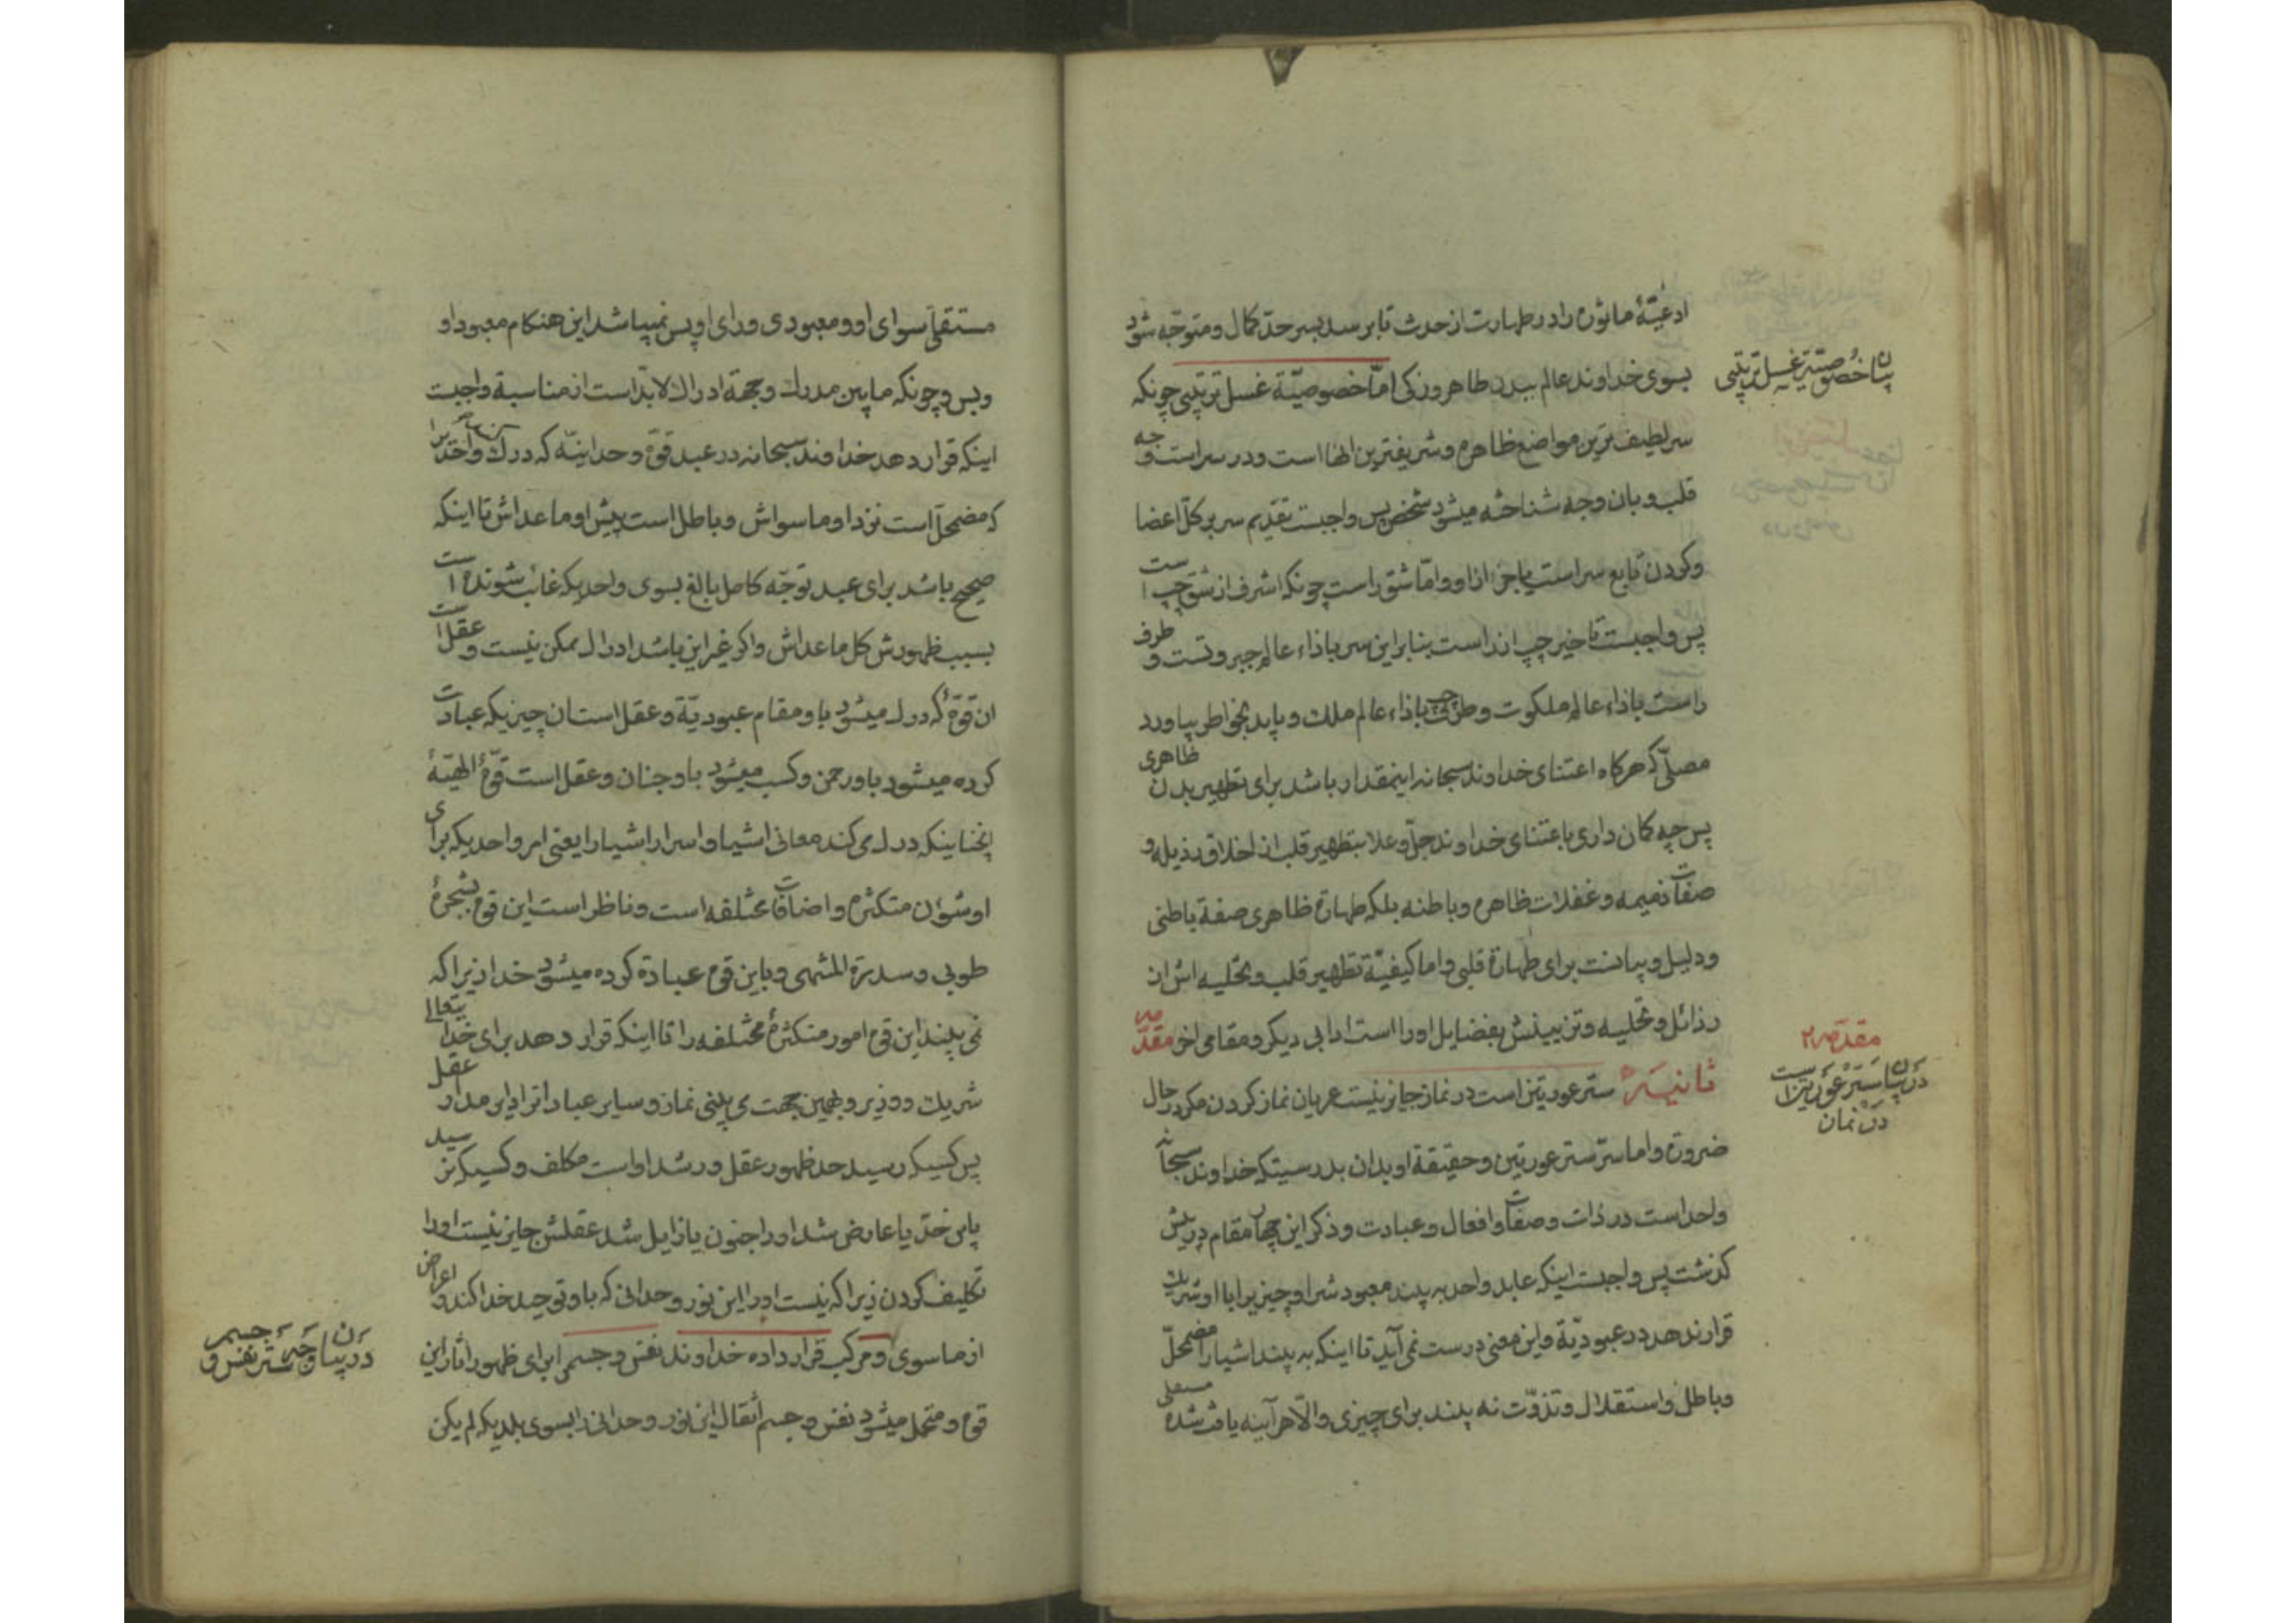 ادعیّهٔ ماثوره را در طهارت از حدث تا برسد بسر حدّ کمال و متوجّه شود
بسوی خداوند عالم ببدن طاهر و زکی امّا خصوصیّة غسل ترتیبی چونکه
بیان خصوصیّة غسل ترتیبی
سر لطیف ترین مواضع ظاهره و شریفترین انها است و در سر است وجه
قلب و بان وجه شناخته میشود شخص پس واجبست تقدیم سر بر کلّ اعضا
و کردن تابع سر است یا جزء از او و امّا شق راست چونکه اشرف از شق چپ است
پس واجبست تاخیر چپ از راست بنابر این سر باذاء عالم جبروتست و طرف
راست باذاء عالم ملکوت و طرف چپ باذاء عالم ملک و باید بخواطر بیاورد
مصلّی که هرکاه اعتنای خداوند سبحانه اینمقدار باشد برای تطهیر بدن ظاهری
پس چه کان داری باعتنای خداوند جلّ و علا بتطهیر قلب از اخلاق رذیله و
صفات ذمیمه و غفلات ظاهره و باطنه بلکه طهارة ظاهری صفة باطنی
و دلیل و بیانست برای طهارة قلبی و اما کیفیّة تطهیر قلب و تخلیه اش از
رذائل و تحلیه و تزیینش بفضایل او را است ادابی دیکر و مقامی اخر مقدّمه
ثانیه ستر عورتین است در نماز جایز نیست عریان نماز کردن مکر در حال
مقدّمه ۲
در بیان ستر عورتین است
در نماز
ضرورة و اما سرّ ستر عورتین و حقیقة او بدان بدرستیکه خداوند سبحانه
واحد است در ذات و صفات و افعال و عبادت و ذکر این چهار مقام در پیش
کذشت پس واجبست اینکه عابد واحد به بیند معبودش را و چیزیرا با او شریک
قرار ندهد در عبودیّة و این معنی درست نمی آید تا اینکه به بیند اشیا را مضمحلّ
و باطل و استقلال و تذوّت نه بیند برای چیزی و الّا هر آینه یافت شده
مستقلی سوای او و معبودی ورای او پس نمیباشد این هنکام معبود او
و بس و چونکه ما بین مدرک و جهة ادراک لابدّ است از مناسبة واجبست
اینکه قرار دهد خداوند سبحانه در عبد قوّة وحدانیّه که درک واحد را
که مضمحلّ است نزد او ما سواش و باطل است پیش او ما عداش تا اینکه
صحیح باشد برای عبد توجّه کامل بالغ بسوی واحدیکه غائب شونده است
بسبب ظهورش کل ما عداش و اکر غیر این باشد ادراک ممکن نیست و عقل است
ان قوّهٔ که درک میشود باو مقام عبودیّة و عقل است ان چیزیکه عبادت
کرده میشود باو رحمن و کسب میشود باو جنان و عقل است قوّهٔ الهیّهٔ
انچنانیکه درک می کند معانی اشیا و اسرار اشیا را یعنی امر واحدیکه برای
او شؤن متکثره و اضافات مختلفه است و ناظر است این قوه بشجرهٔ
طوبی و سدرة المنتهی و باین قوه عبادة کرده میشود خدا زیرا که
نمی بیند این قوه امور متکثرهٔ مختلفه را تا اینکه قرار دهد برای خدایتعالی
شریک و وزیر و بهمین جهت می بینی نماز و سایر عبادات را دایر مدار عقل
پس کسیکه رسید حد ظهور عقل و رشد او است مکلف و کسیکه نرسید
باین حدّ یا عارض شد او را جنون یا زایل شد عقلش جایز نیست او را
تکلیف کردن زیرا که نیست او را این نور وحدانی که باو توحید خدا کند و اعراض
از ما سوی او و مرکب قرار داده خداوند نفس و جسم را برای ظهور اثار این
در بیان وجه ستر نفس و جسم
قوه و متحمل میشود نفس و جسم اثقال این نور وحدانی را بسوی بلدیکه لم یکن